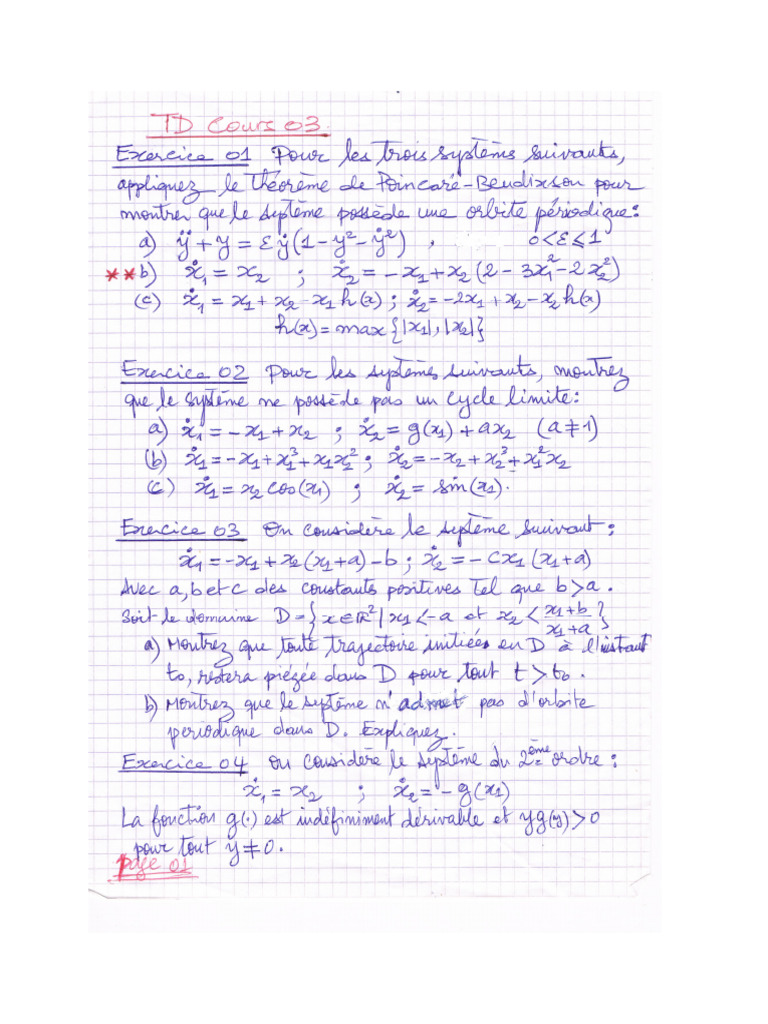 TD Cours 03
Exercice 01 Pour les trois systèms suivants,
appliquez le théorème de Poincaré-Bendixson pour
montrer que le système possède une orbite périodique:
a) ÿ + y = εẏ(1 - y² - ẏ²) , 0<ε≤1
**b) ẋ₁ = x₂ ; ẋ₂ = -x₁ + x₂(2 - 3x₁² - 2x₂²)
(c) ẋ₁ = x₁ + x₂ - x₁h(x) ; ẋ₂ = -2x₁ + x₂ - x₂h(x)
h(x) = max{|x₁|, |x₂|}
Exercice 02 Pour les systèmes suivants, montrez
que le système ne possède pas un cycle limite:
a) ẋ₁ = -x₁ + x₂ ; ẋ₂ = g(x₁) + ax₂ (a≠1)
(b) ẋ₁ = -x₁ + x₁³ + x₁x₂² ; ẋ₂ = -x₂ + x₂³ + x₁²x₂
(c) ẋ₁ = x₂cos(x₁) ; ẋ₂ = sin(x₁).
Exercice 03 On considère le système suivant:
ẋ₁ = -x₁ + x₂(x₁+a) - b ; ẋ₂ = -cx₁(x₁+a)
Avec a, b et c des constants positives tel que b>a.
Soit le domaine D = {x∈ℝ² | x₁<-a et x₂ < (x₁+b)/(x₁+a)}
a) Montrez que toute trajectoire initiées en D à l'instant
t₀, restera piégée dans D pour tout t>t₀.
b) Montrez que le système n'admet pas d'orbite
periodique dans D. Expliquez.
Exercice 04 On considère le système du 2ème ordre:
ẋ₁ = x₂ ; ẋ₂ = -g(x₁)
La fonction g(·) est indéfiniment dérivable et yg(y)>0
pour tout y≠0.
page 01